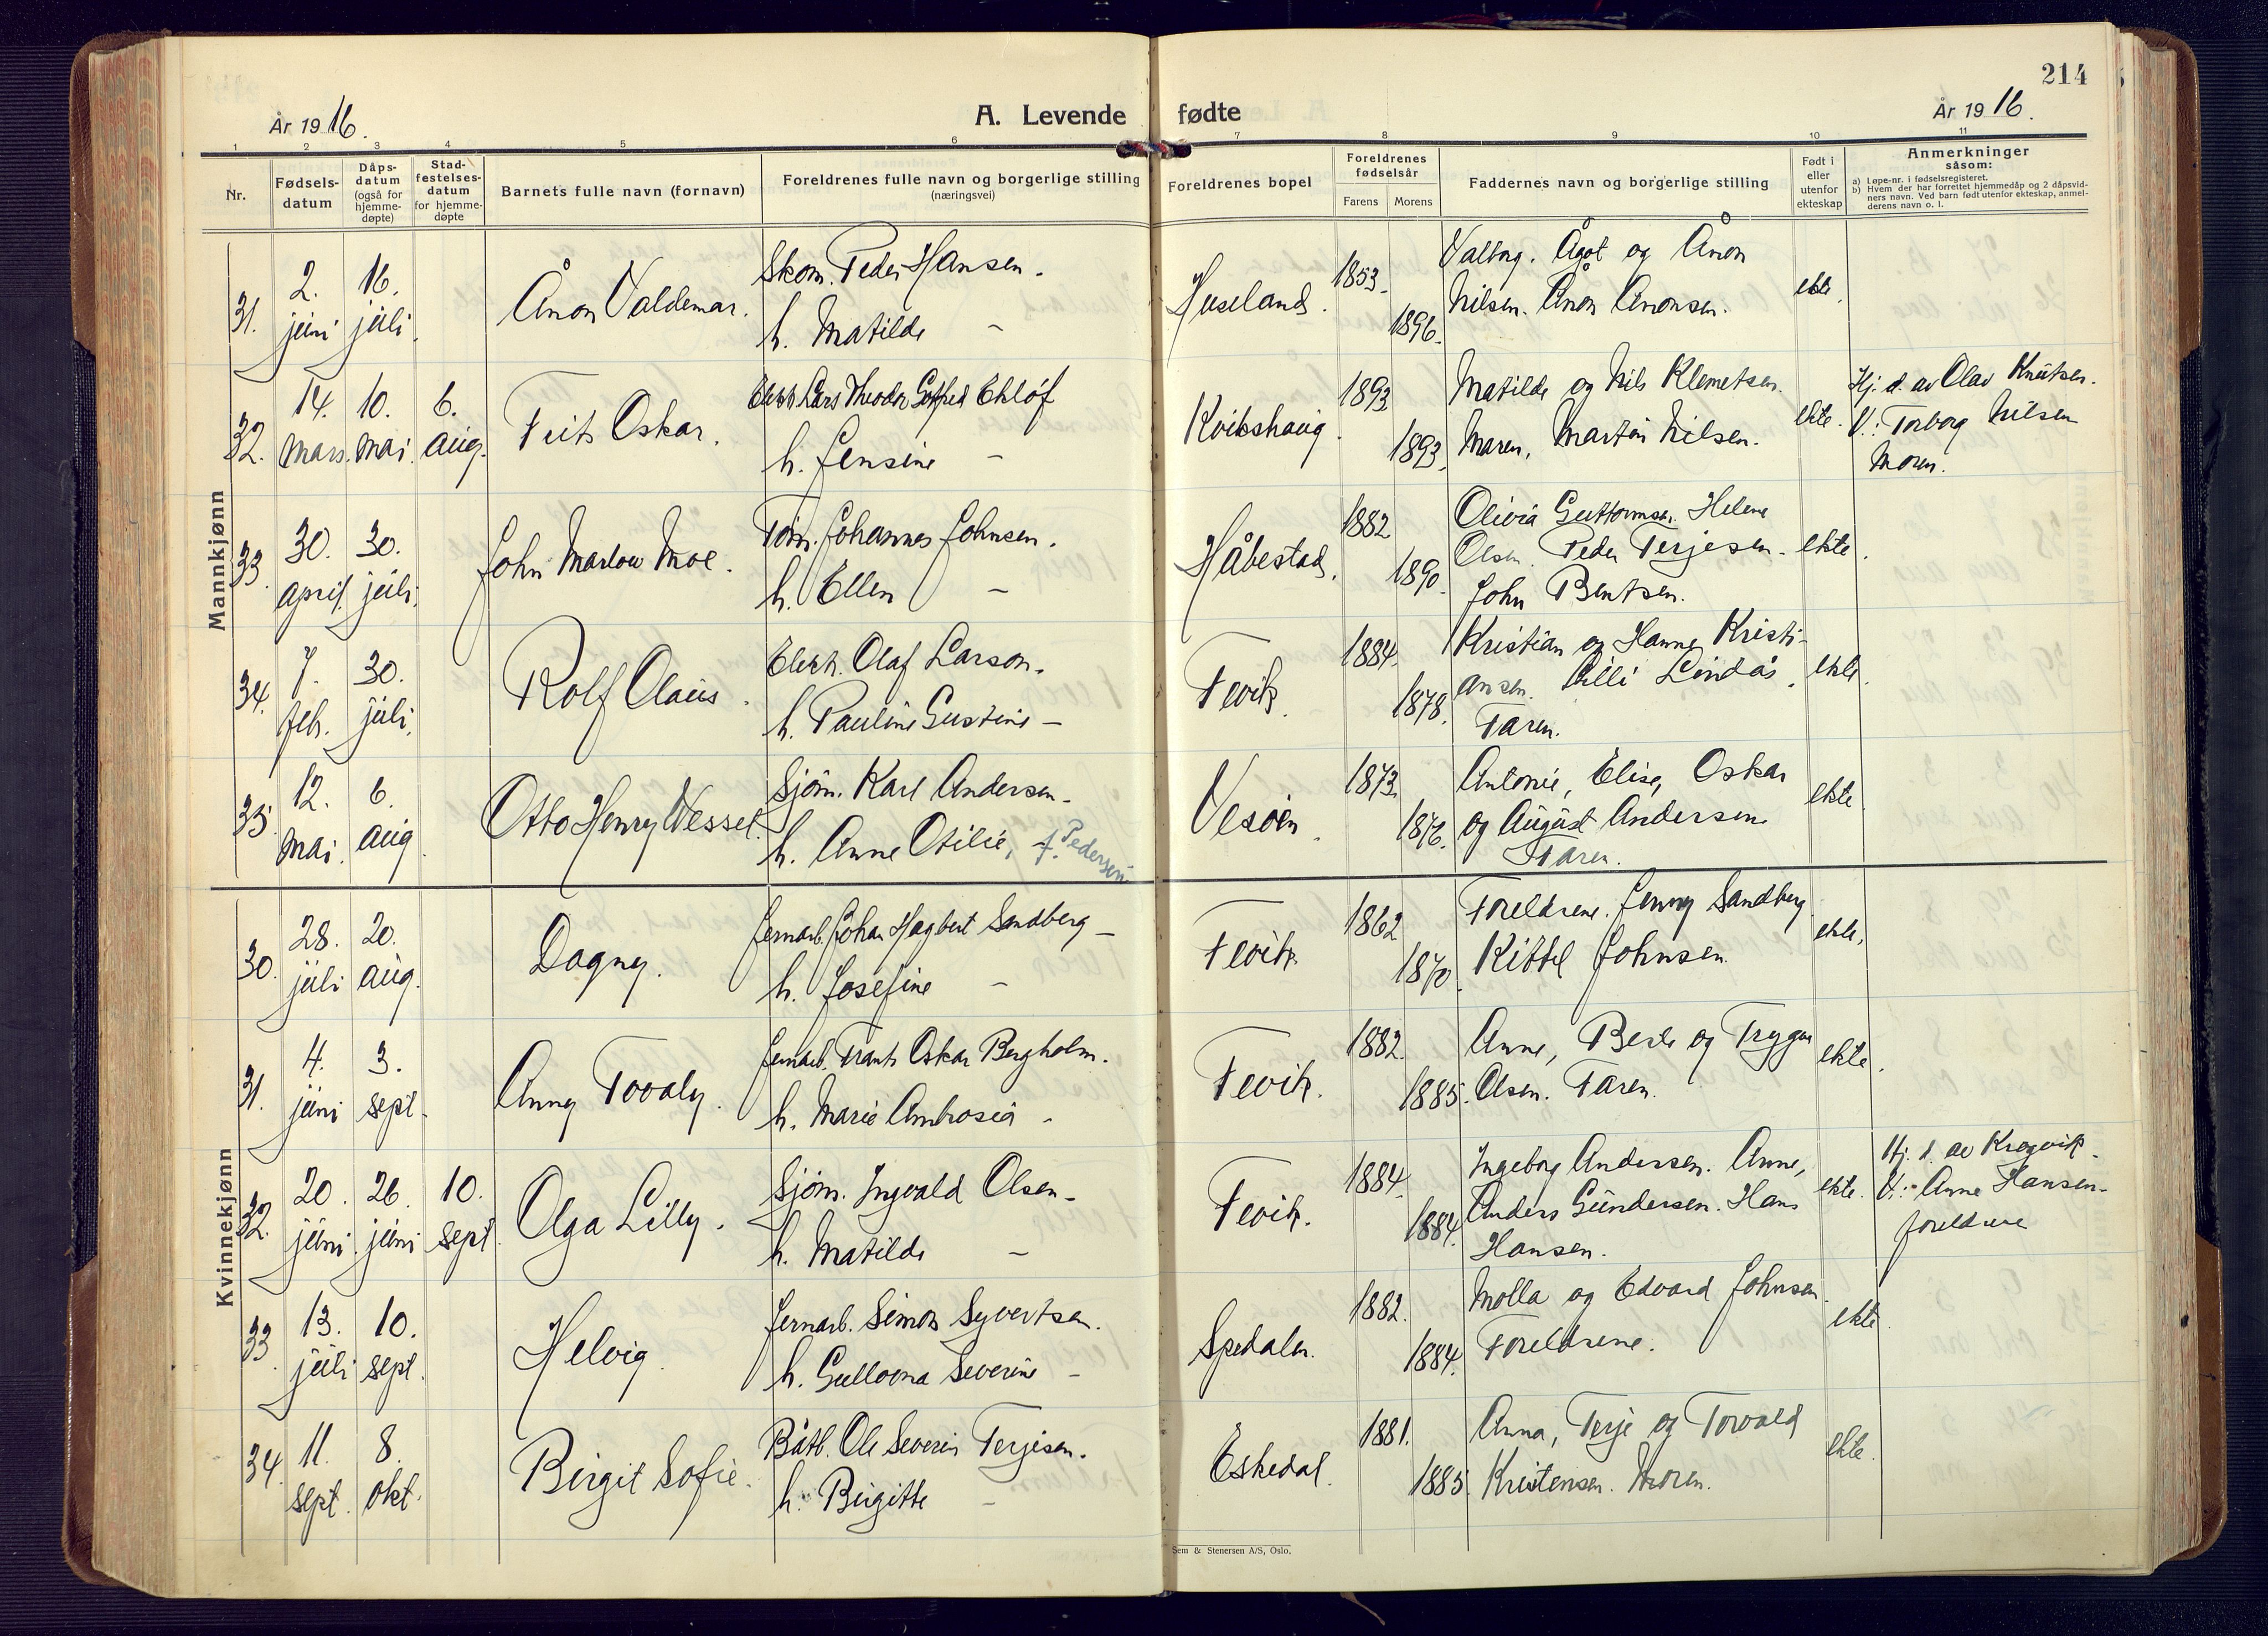 214
År 1916.
A. Levende fødte
År 1916.
1 2 3 4 5 6 7 8 9 10 11
Nr.
Fødsels-
datum
Dåps-
datum
(også for
hjemme-
døpte)
Stad-
festelses-
datum
for hjemme-
døpte
Barnets fulle navn (fornavn)
Foreldrenes fulle navn og borgerlige stilling
(næringsvei)
Foreldrenes bopel
Foreldrenes
fødselsår
Farens Morens
Faddernes navn og borgerlige stilling
Født i
eller
utenfor
ekteskap
Anmerkninger
såsom:
a) Løpe-nr. i fødselsregisteret.
b) Hvem der har forrettet hjemmedåp og 2 dåpsvid-
ners navn. Ved barn født utenfor ekteskap, anmel-
derens navn o. l.
Mannkjønn
31.
2.
juni
16.
juli.
Ånon Valdemar.
Skom. Peder Hansen.
h. Matilde –
Huseland.
1853.
1896.
Valborg. Ågot og Ånon
Nilsen. Ånon Ånonsen.
ekte.
32.
14.
mars.
10.
mai.
6.
aug.
Frits Oskar.
Elekt Lars Theodor Gotfred Ekløf
h. Jensine –
Kvikshaug.
1893
1893.
Matilde og Nils Klemetsen.
Maren, Martin Nilsen.
ekte.
Hj. d. av Olav Knutsen.
V.: Torborg Nilsen
Moren.
33.
30.
april.
30.
juli.
John Marlow Moe.
Tøm. Johannes Johnsen.
h. Ellen –
Håbestad.
1882
1890.
Olivia Guttormsen. Helene
Olsen. Peder Terjesen.
John Bentsen.
ekte.
34.
7.
feb.
30.
juli.
Rolf Olaus.
Elekt. Olaf Larson.
h. Pauline Gustine –
Fevik.
1884.
1878.
Kristian og Hanna Kristi-
ansen. Lilli Lindås.
Faren.
ekte.
35.
12.
mai.
6.
aug.
Otto Henry Wessel.
Sjøm. Karl Andersen.
h. Anne Otilie, f. Pedersen
Vesøen.
1873.
1876.
Antonie, Elise, Oskar
og August Andersen
Faren.
ekte
Kvinnekjønn
30.
28.
juli
20.
aug.
Dagny.
Jernarb. Johan Hagbert Sandberg –
h. Josefine –
Fevik
1862
1870.
Foreldrene. Jenny Sandberg
Kittel Johnsen.
ekte.
31.
4.
juni
3.
sept.
Anny Tovaly.
Jernarb. Frants Oskar Bergholm.
h. Marie Ambrosia.
Fevik.
1882.
1885.
Anne, Berte og Trygve
Olsen. Faren.
ekte.
32.
20.
juni.
26.
juni.
10.
sept.
Olga Lilly.
Sjøm. Ingvald Olsen.
h. Matilde –
Fevik.
1884.
1884.
Ingeborg Andersen. Anne,
Anders Gundersen. Hans
Hansen.
ekte.
Hj. d. av Kragvik.
V.: Anne Hansen.
foreldrene
33
13.
juli
10.
sept.
Helvig.
Jernarb. Simon Syvertsen.
h. Gullovna Severine –
Spedalen.
1882.
1884.
Molla og Edvard Johnsen.
Foreldrene.
ekte.
34.
11.
sept.
8.
okt.
Birgit Sofie.
Båtb. Ole Severin Terjesen.
h. Birgitte –
Eskedal.
1881.
1885.
Anna, Terje og Torvald
Kristensen. Moren.
ekte.
Sem & Stenersen A/S, Oslo.